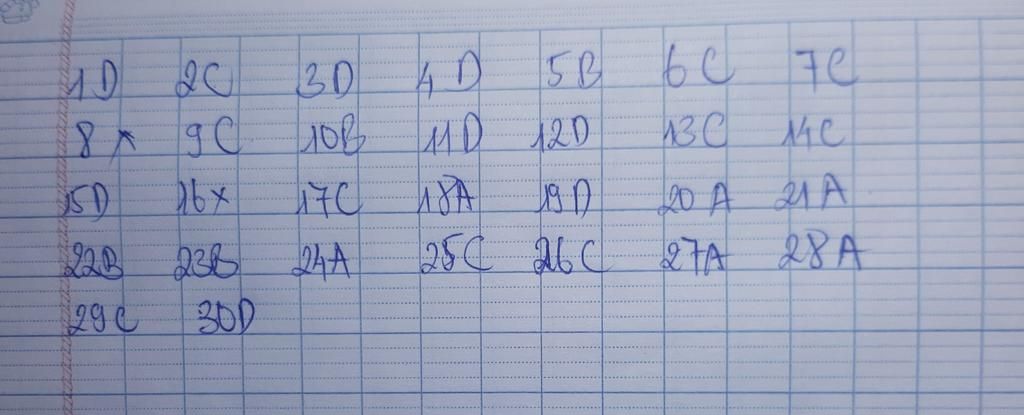 1D 2C 3D 4D 5B 6C 7C
8x 9C 10B 11D 12D 13C 14C
15D 16x 17C 18A 19D 20A 21A
22B 23B 24A 25C 26C 27A 28A
29C 30D